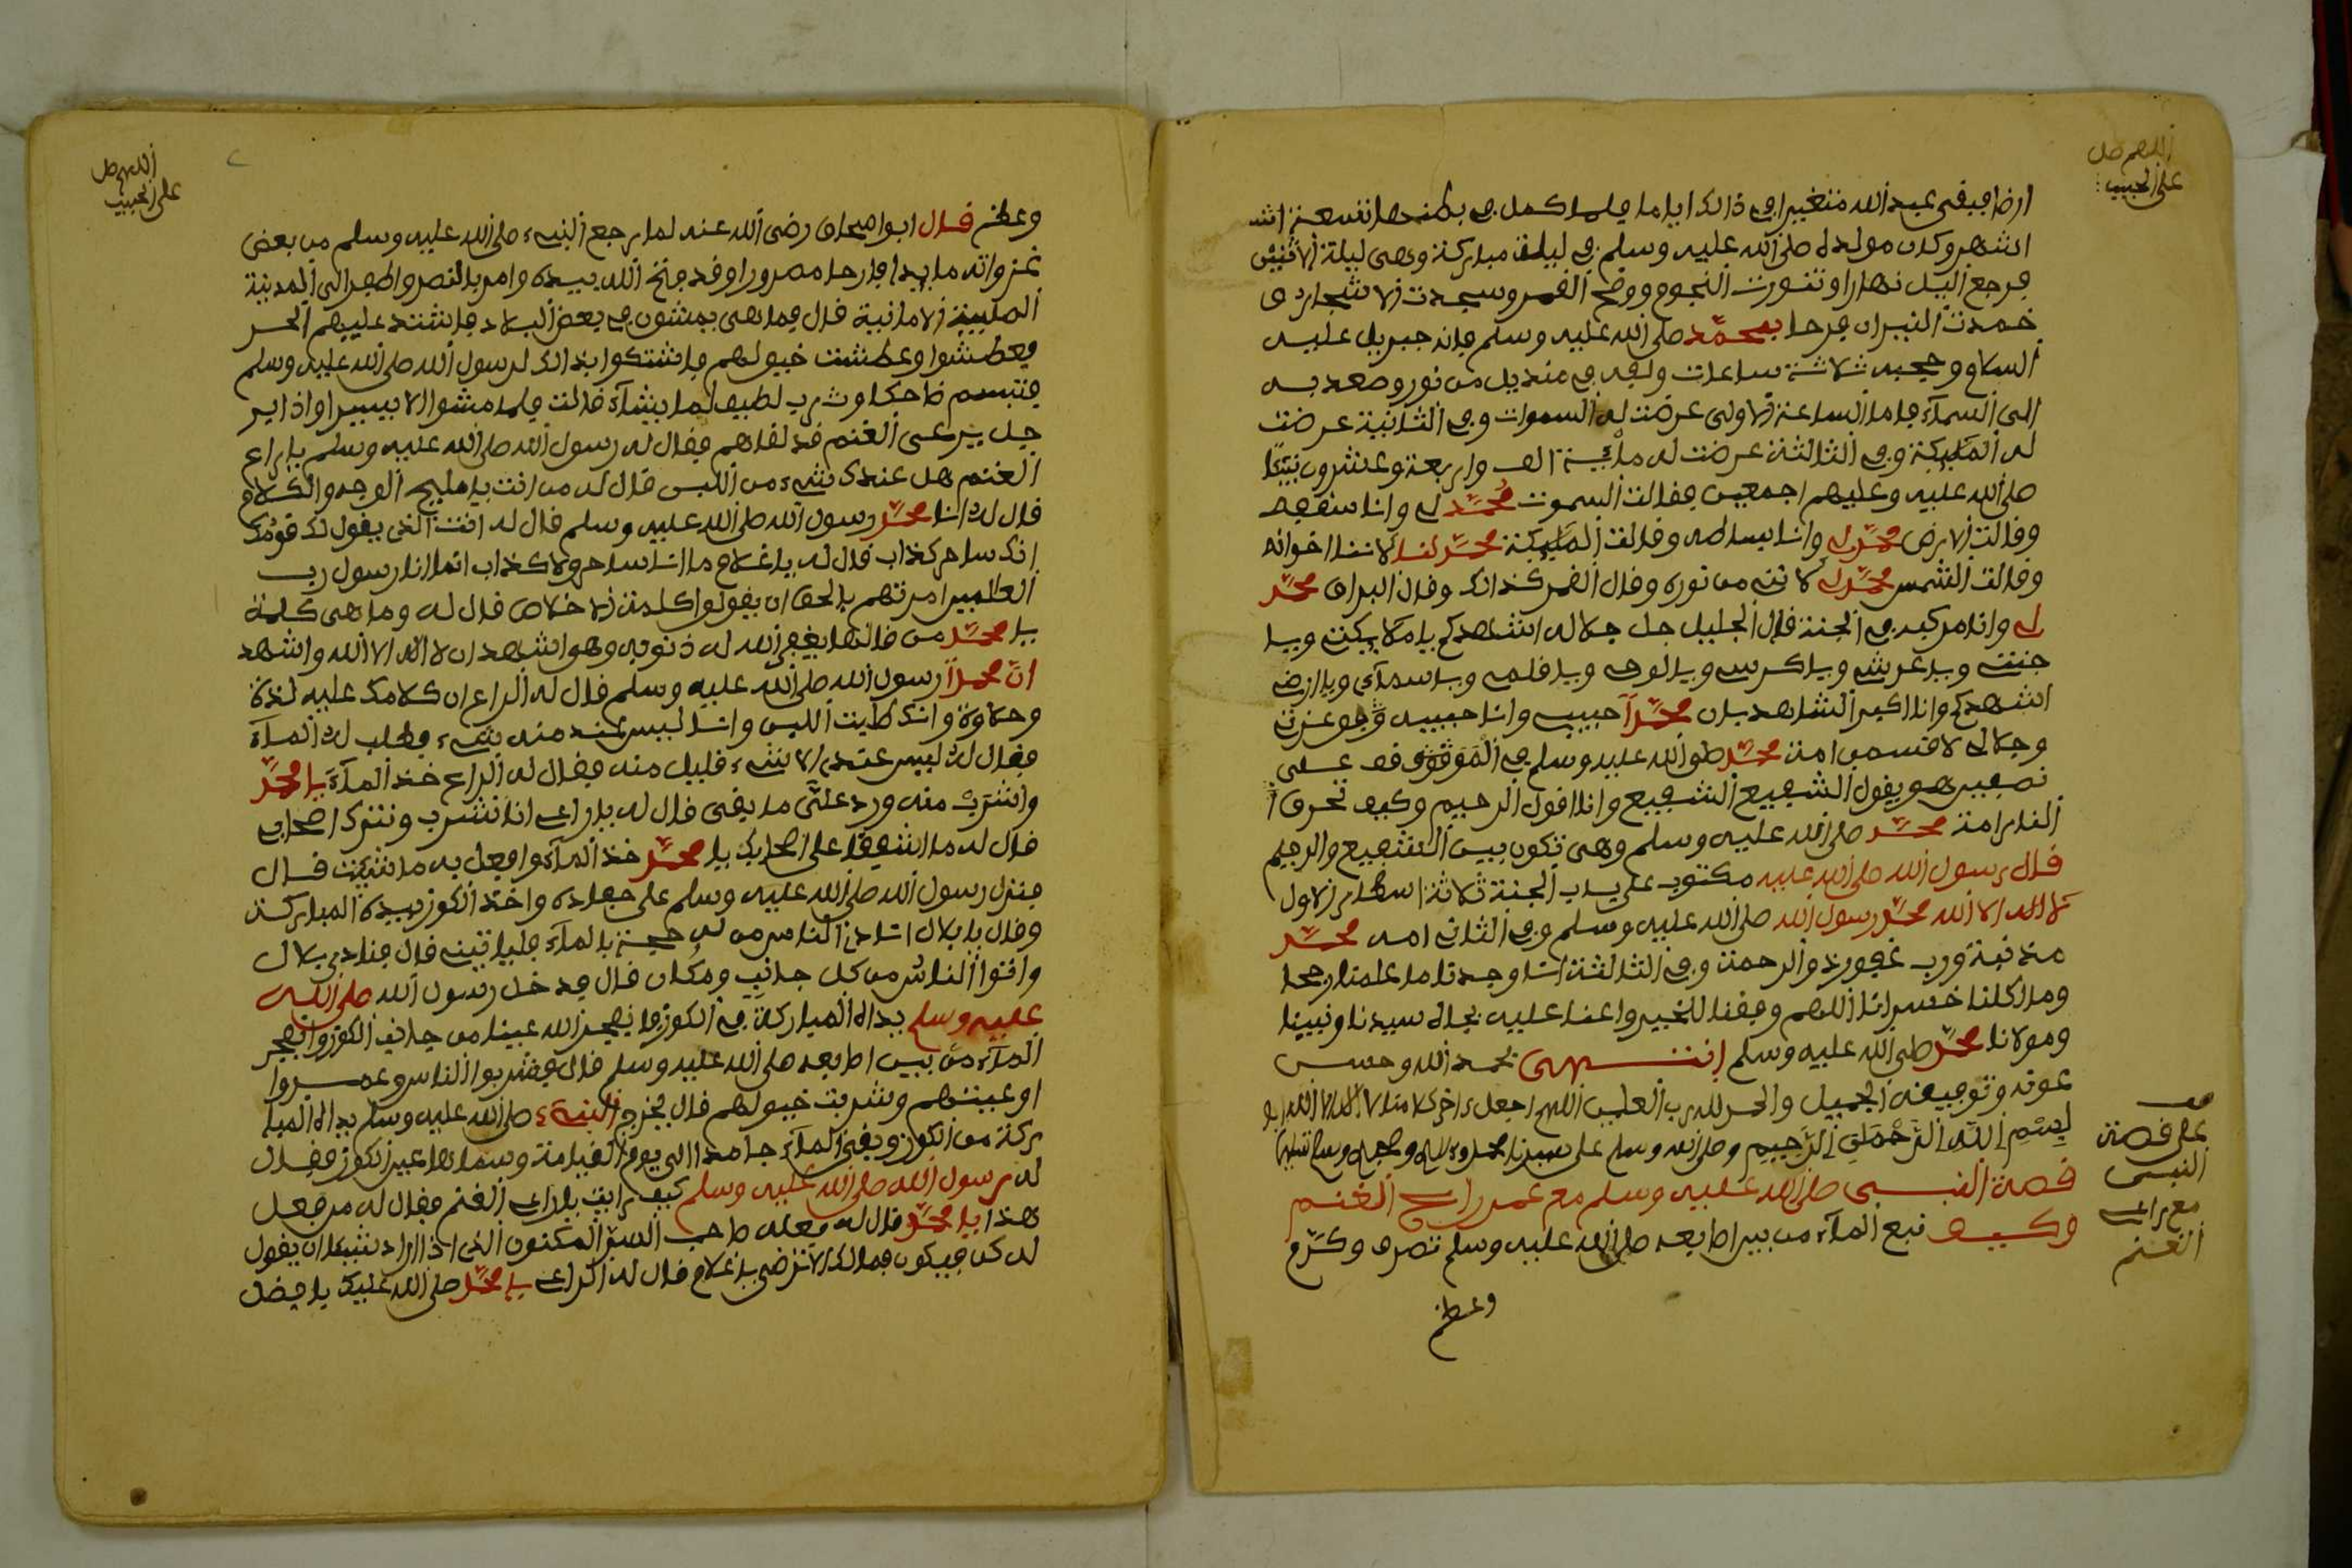 اللهم صل
على الحبيب
ارضا فبقى عبد الله متغيرا في ذالك اياما فلما كمل في بطنها تسعة اشـ
اشهر وكان مولده صلى الله عليه وسلم في ليلة مباركة وهى ليلة الاثنين
فرجع اليل نهارا وتنورت النجوم ووضح القمر وسجدت الاشجار و
خمدت النيران فرحا بمحمد صلى الله عليه وسلم فانه جبريل عليه
السلام وحجبه ثلاثة ساعات ولفه في منديل من نور وصعد به
الى السماء فاما الساعة الاولى عرضت له السموات وفي الثانية عرضت
له المليكة وفي الثالثة عرضت له ماية الف واربعة وعشرون نبيئا
صلى الله عليه وعليهم اجمعين فقالت السموت محمد لي وانا سقفه
وقالت الارض محمد لي وانا بساطه وقالت المليكة محمد لنا لاننا اخوانه
وقالت الشمس محمد لي لانني من نوره وقال القمر كذالك وقال البراق محمد
لي وانا مركبه في الجنة قال الجليل جل جلاله اشهدكم يا ملايكتي ويا
جنتي ويا عرشي ويا كرسي ويا لوحي ويا قلمي ويا سماي ويا ارضي
اشهدكم وانا اكبر الشاهد بان محمدا حبيبي وانا حبيبه فوعزتي
وجلالي لا قسمن امة محمد صلى الله عليه وسلم في الموقوف على
نصفين هو يقول الشفيع الشفيع وانا اقول الرحيم وكيف تحرق ا
النار امة محمد صلى الله عليه وسلم وهى تكون بين الشفيع والرحيم
قال رسول الله صلى الله عليه مكتوب على باب الجنة ثلاثة اسطار الاول
لا اله الا الله محمد رسول الله صلى الله عليه وسلم وفي الثاني امه محمد
مذنبة ورب غفور ذو الرحمة وفي الثالثة انا وجدنا ما علمنا ربحا
وما اكلنا خسرانا اللهم وفقنا للخير واعنا عليه بجاه سيدنا ونبينا
ومولانا محمد صلى الله عليه وسلم انتهى بحمد الله وحسن
عونه وتوفيقه الجميل والحمد لله رب العلمين اللهم اجعل ءاخر كلامنا لا اله الا الله
بسم الله الرحمن الرحيم وصلى الله وسلم على سيدنا محمد وءاله وصحبه وسلم تسليما
قصة النبي صلى الله عليه وسلم مع عمر راعي الغنم
وكيف نبع الماء من بين اصابعه صلى الله عليه وسلم تصرف وكرم
وعظم
قف
على قصة
النبي
مع راعي
الغنم
اللهم صل
على الحبيب
وعظم قال ابوا اسحاق رضى الله عنه لما رجع النبيء صلى الله عليه وسلم من بعض
غزواته مايدا فارحا مسرورا وقد فتح الله بيده وامر بالنصر والظفر الى المدينة
الطيبة الامانية قال فما هى يمشون في بعض البلاد فاشتد عليهم الحر
فعطشوا وعطشت خيولهم فاشتكوا بذالك لرسول الله صلى الله عليه وسلم
فتبسم ضاحكا وثم رب لطيف لما يشاء قالت فلما مشوا الا يسيرا واذا بر
جل يرعى الغنم قد لقاهم فقال له رسول الله صلى الله عليه وسلم يا راع
الغنم هل عندك شيء من اللبن قال له من انت يا مليح الوجه والكلام
قال له انا محمد رسول الله صلى الله عليه وسلم قال له انت الذي يقول لك قومك
انك ساحر كذاب قال له يا غلام ما انا ساحر ولا كذاب انما انا رسول رب
العالمين امرتهم بالحق ان يقولوا كلمة الاخلاص قال له وما هى كلمة
يا محمد من قالها يغفر الله له ذنوبه وهو اشهد ان لا اله الا الله واشهد
ان محمدا رسول الله صلى الله عليه وسلم قال له الراعي ان كلامك عليه لذة
وحلاوة وانك طليت اللبن وانا ليس عند منه شيء فطلب له الماء
فقال له ليس عندي الا شيء قليل منه فقال له الراع خذ الماء يا محمد
واشرب منه ورد علي ما بقى قال له يا راعي انا نشرب ونترك اصحابي
قال له ما اشفقك على اصحابك يا محمد خذ الماء وافعل به ما شئت قال
فنزل رسول الله صلى الله عليه وسلم على جواده واخذ الكوز بيده المباركة
وقال يا بلال اناد في الناس من له حجة بالماء فلياتينه قال فنادى بلال
واتوا الناس من كل جانب ومكان قال فدخل رسول الله صلى الله
عليه وسلم يداه المباركة في الكوز فانفجر الله عينا من جانب الكوز وانفجر
الماء من بين اصابعه صلى الله عليه وسلم قال فشربوا الناس وعمروا
اوعيتهم وشربت خيولهم قال فخرج النبيء صلى الله عليه وسلم يداه المبا
ركة من الكوز وبقى الماء جامدا الى يوم القيامة وسماها عين الكوز فقال
له رسول الله صلى الله عليه وسلم كيف رايت يا راعي الغنم فقال له من فعل
هذا يا محمد قال له فعله صاحب السر المكنون الذي اذا اراد شيئا ان يقول
له كن فيكون فما لك لا ترضى يا غلام قال له الراعي يا محمد صلى الله عليك يا فضل